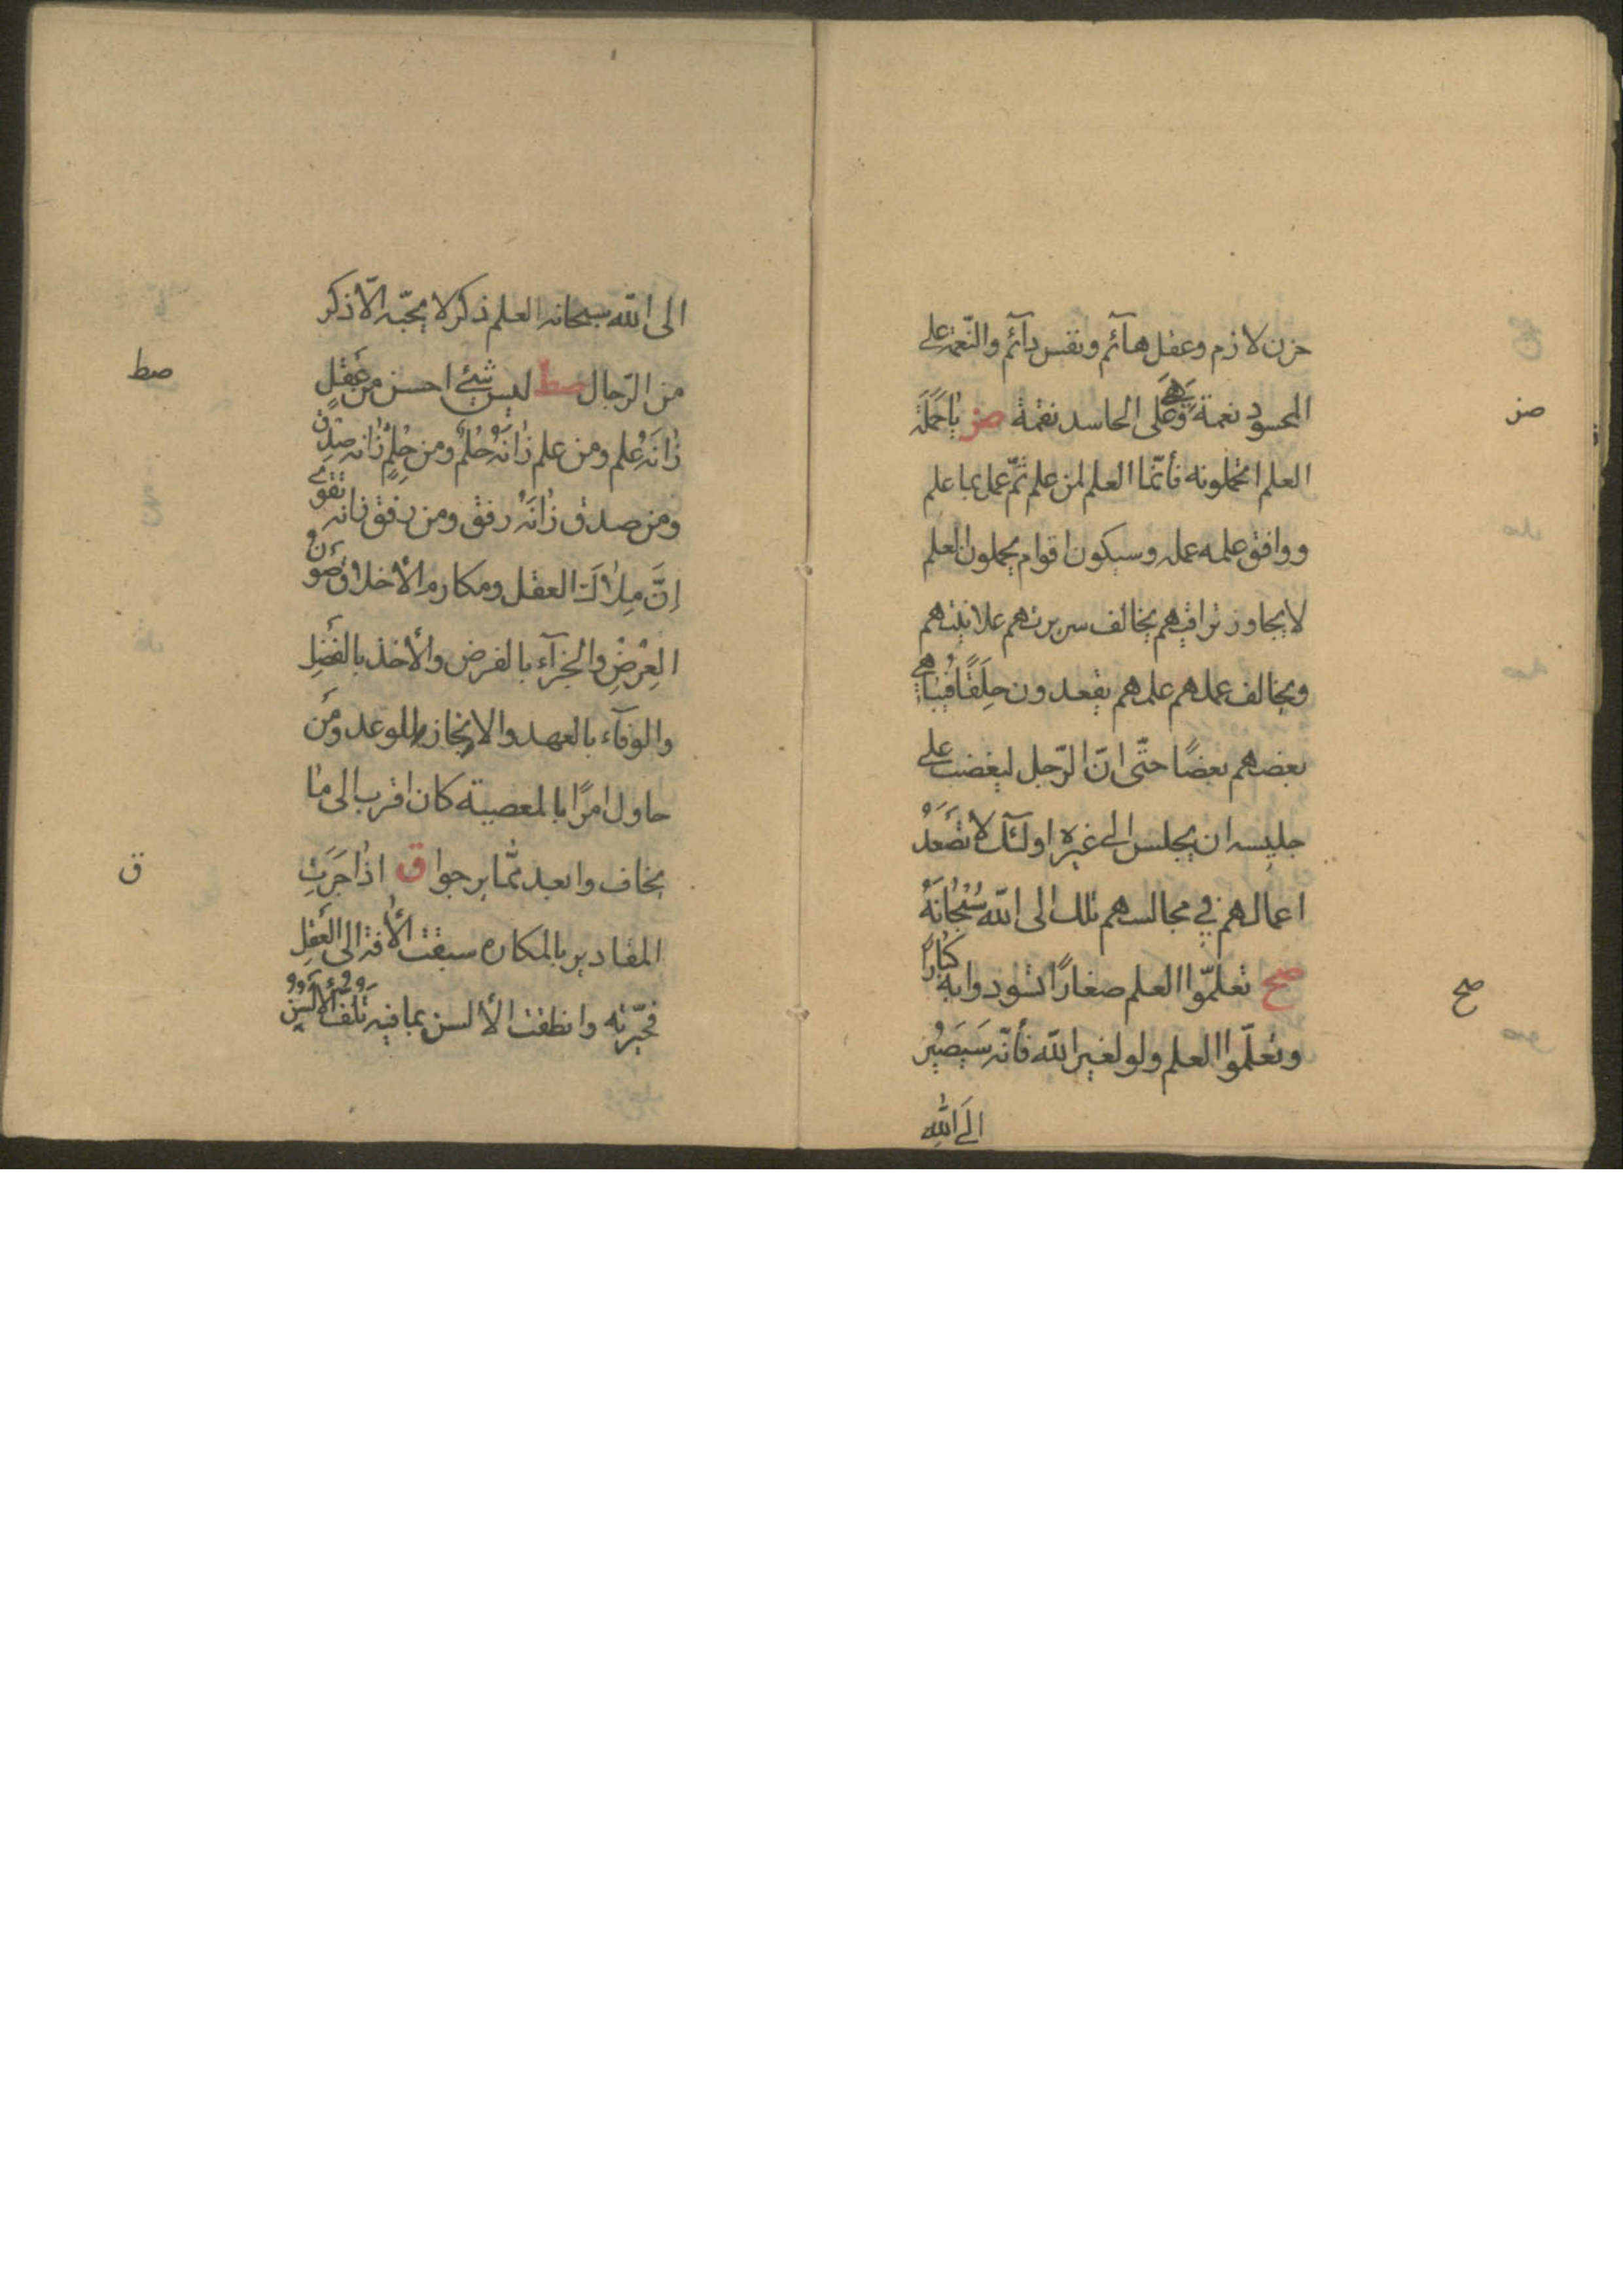 حزن لازم وعقل هآئم ونفس دآئم والنّعمة على
المحسود نعمة وَهِىَ عَلَى الحاسد نقمة صز يٰا حَمَلَةَ
صز
العلم اتحملونه فأنّما العلم لمن علم ثمّ عمل بما علم
ووافق علمه عمله وسيكون اقوام يحملون العلم
لا يجاوز تراقيهم يخالف سريرتهم علانيتهم
ويخالف عملهم علمهم يقعدون حِلَقًا فَيُبٰاهِي
بعضهم بعضًا حتّى انّ الرّجل ليغضب على
جليسه ان يجلس الى غيره اولٓئك لاٰ تَصْعَدُ
اعمالهم في مجالسهم تلك الى اللّه سُبْحٰانَهُ
صح تعلّموا العلم صغارًا تسودوا به كُبٰارًا
صح
وتعلّموا العلم ولو لغير اللّه فأنّه سَيَصيٖر
الَى اللّٰهِ
الى اللّه سبحانه العلم ذكر لا يحبّه الّا ذكر
من الرّجال صط ليس شيئ احسن من عَقْلٍ
صط
زٰانَهُ عِلم ومن علم زٰانَهُ حِلْمٌ ومن حِلمٍ زٰانه صِدْقٌ
ومن صدق زٰانَهُ رفق ومن رفق زٰانه تقوى
اِنَّ مِلٰاكَ العقل ومكارم الأخلاق صَوْنُ
العِرْضِ والجزآء بالفرض والأخذ بالفَضْلِ
والوفآء بالعهد والانجاز للوعد وَمَن
حاول امرًا بالمعصية كان اقرب الى مٰا
يخاف وابعد ممّا يرجوا ق اذٰا جَرَتِ
ق
المقادير بالمكاره سبقت الأٰفة الى العَقْلِ
فحيّرته وانطقت الألسن بما فيه تَلَفُ الأنْفُسِ